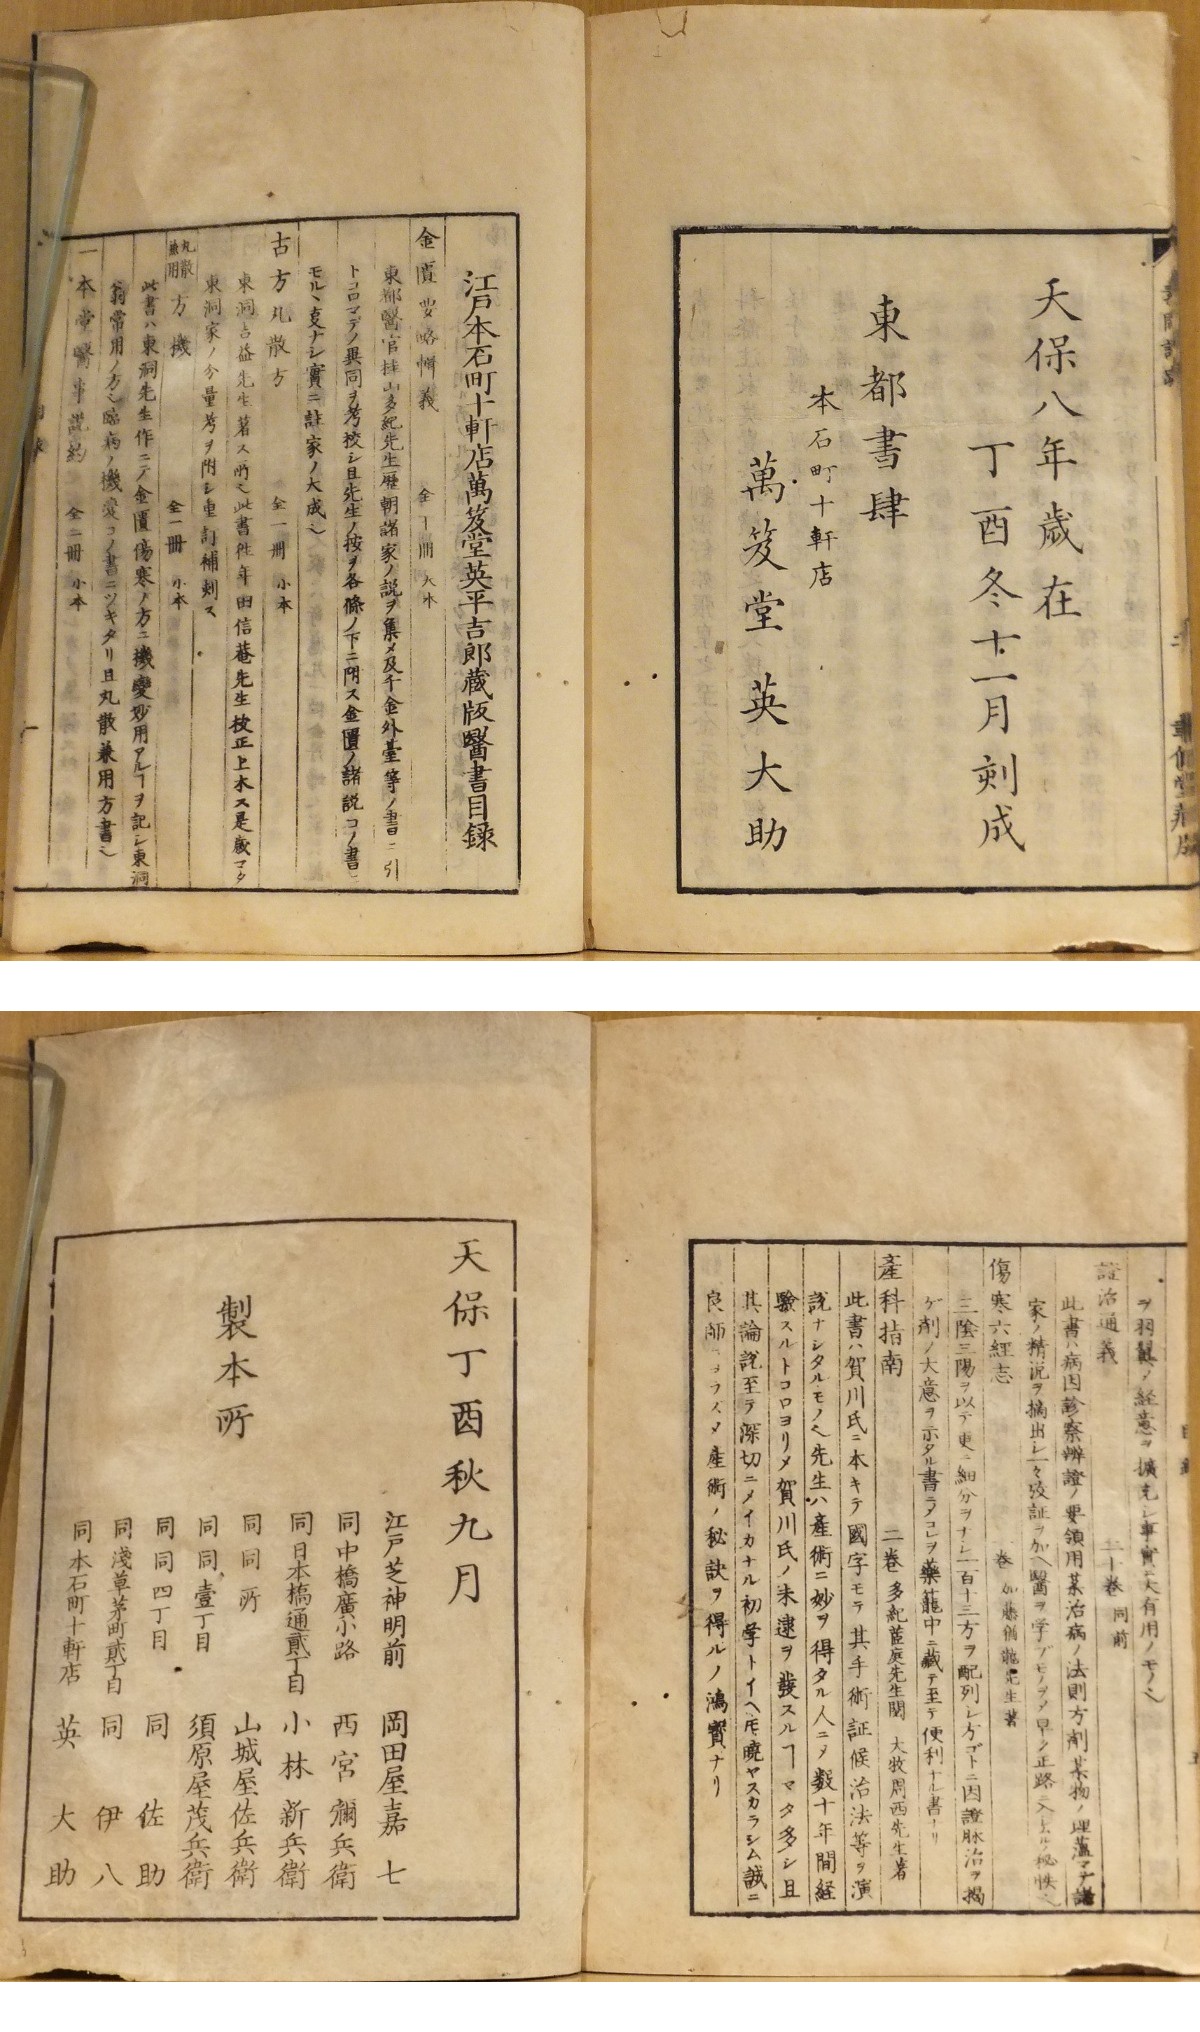 天保八年歳在
丁酉冬十一月刻成
東都書肆
本石町十軒店
萬笈堂英大助
江戸本石町十軒店萬笈堂英平吉郎蔵版醫書目録
金匱要略輯義 全十冊 大本
東都醫官桂山多紀先生歴朝諸家ノ説ヲ集メ及千金外臺等ノ書ニ引
トコロマデノ異同ヲ考校シ且先生ノ按ヲ各條ノ下ニ附ス金匱ノ諸説コノ書ニ
モルヽ支ナシ實ニ註家ノ大成ン
古方丸散方 全一冊 小本
東洞吉益先生著ス所ン此書往年田信菴先生校正上木ス是歳マタ
東洞家ノ分量考ヲ附シ重訂補刻ス
丸散兼用方機 全一冊 小本
此書ハ東洞先生作ニテ金匱傷寒ノ方ニ機變妙用アルヿヲ記シ東洞
翁常用ノ方ン臨病ノ機変コノ書ニツキタリ且丸散兼用方書ン
一本堂醫事説約 全二冊 小本
ヲ羽翼メ経意ヲ擴充シ事實ニ大有用ノモノン
證治通義 二十巻 同前
此書ハ病因診察辨證ノ要領用某治病ノ法則方剤某物ノ理蘊マデ諸
家ノ精説ヲ摘出シ一々攷証ヲ加ヘ醫ヲ学ブモノヲメ早ク正路ニ入ルノ秘帙ン
傷寒六経志
三陰三陽ヲ以テ更ニ細分ヲナシ一百十三方ヲ配列シ方ゴトニ因證脉治ヲ掲
ゲ剤ノ大意ヲ示タル書ニメコレヲ藥籠中ニ蔵テ至テ便利ナル書ナリ
産科指南 二巻 多紀茝庭先生閲 大牧周西先生著
此書ハ賀川氏ニ本キテ國字モテ其手術証候治法等ヲ演
説ナシタルモノン先生ハ産術ニ妙ヲ得タル人ニメ数十年間経
驗スルトコロヨリメ賀川氏ノ未逮ヲ發スルヿマタ多シ且
其論説至テ深切ニメイカナル初学トイヘ𪜈曉ヤスカラシム誠ニ
良師ニヨラズメ産術ノ秘訣ヲ得ルノ鴻寳ナリ
天保丁酉秋九月
製本所
江戸芝神明前 岡田屋嘉七
同中橋廣小路 西宮彌兵衛
同日本橋通貳丁目 小林新兵衛
同同所 山城屋佐兵衛
同同壹丁目 須原屋茂兵衛
同同四丁目 同佐助
同淺草茅町貳丁目 同伊八
同本石町十軒店 英大助